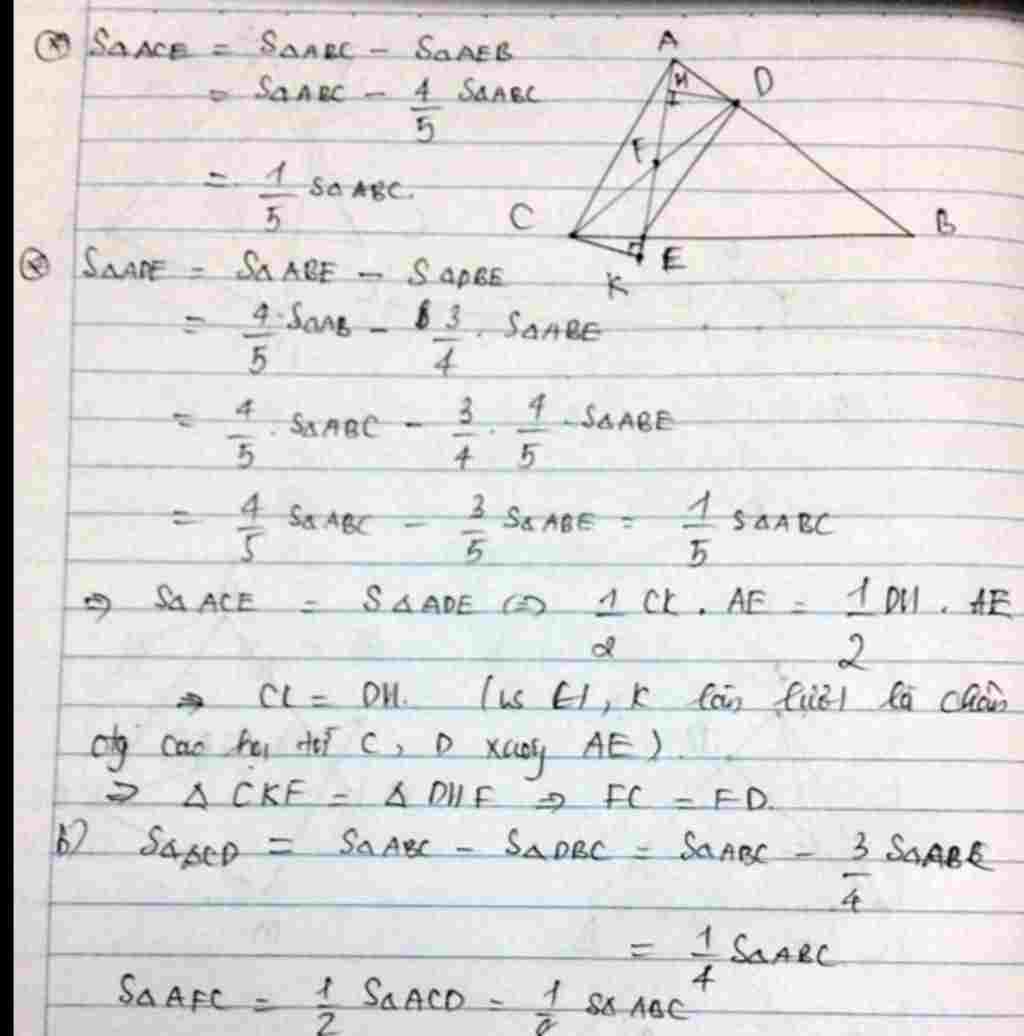 * SΔACE = SΔABC - SΔAEB
= SΔABC - 4/5 SΔABC
= 1/5 SΔABC.
* SΔADE = SΔABE - SΔDBE
= 4/5 . SΔAB - 3/4 . SΔABE
= 4/5 . SΔABC - 3/4 . 4/5 . SΔABE
= 4/5 SΔABC - 3/5 SΔABE = 1/5 SΔABC
⇒ SΔACE = SΔADE ⇔ 1/2 CK . AE = 1/2 DH . AE
⇒ CK = DH. ( H, K lần lượt là chân
đg cao hạ từ C, D xuống AE).
⇒ Δ CKF = Δ DHF ⇒ FC = FD.
b) SΔACD = SΔABC - SΔDBC = SΔABC - 3/4 SΔABE
= 1/4 SΔABC
SΔAFC = 1/2 SΔACD = 1/8 SΔABC
A
H
D
F
C
B
E
K